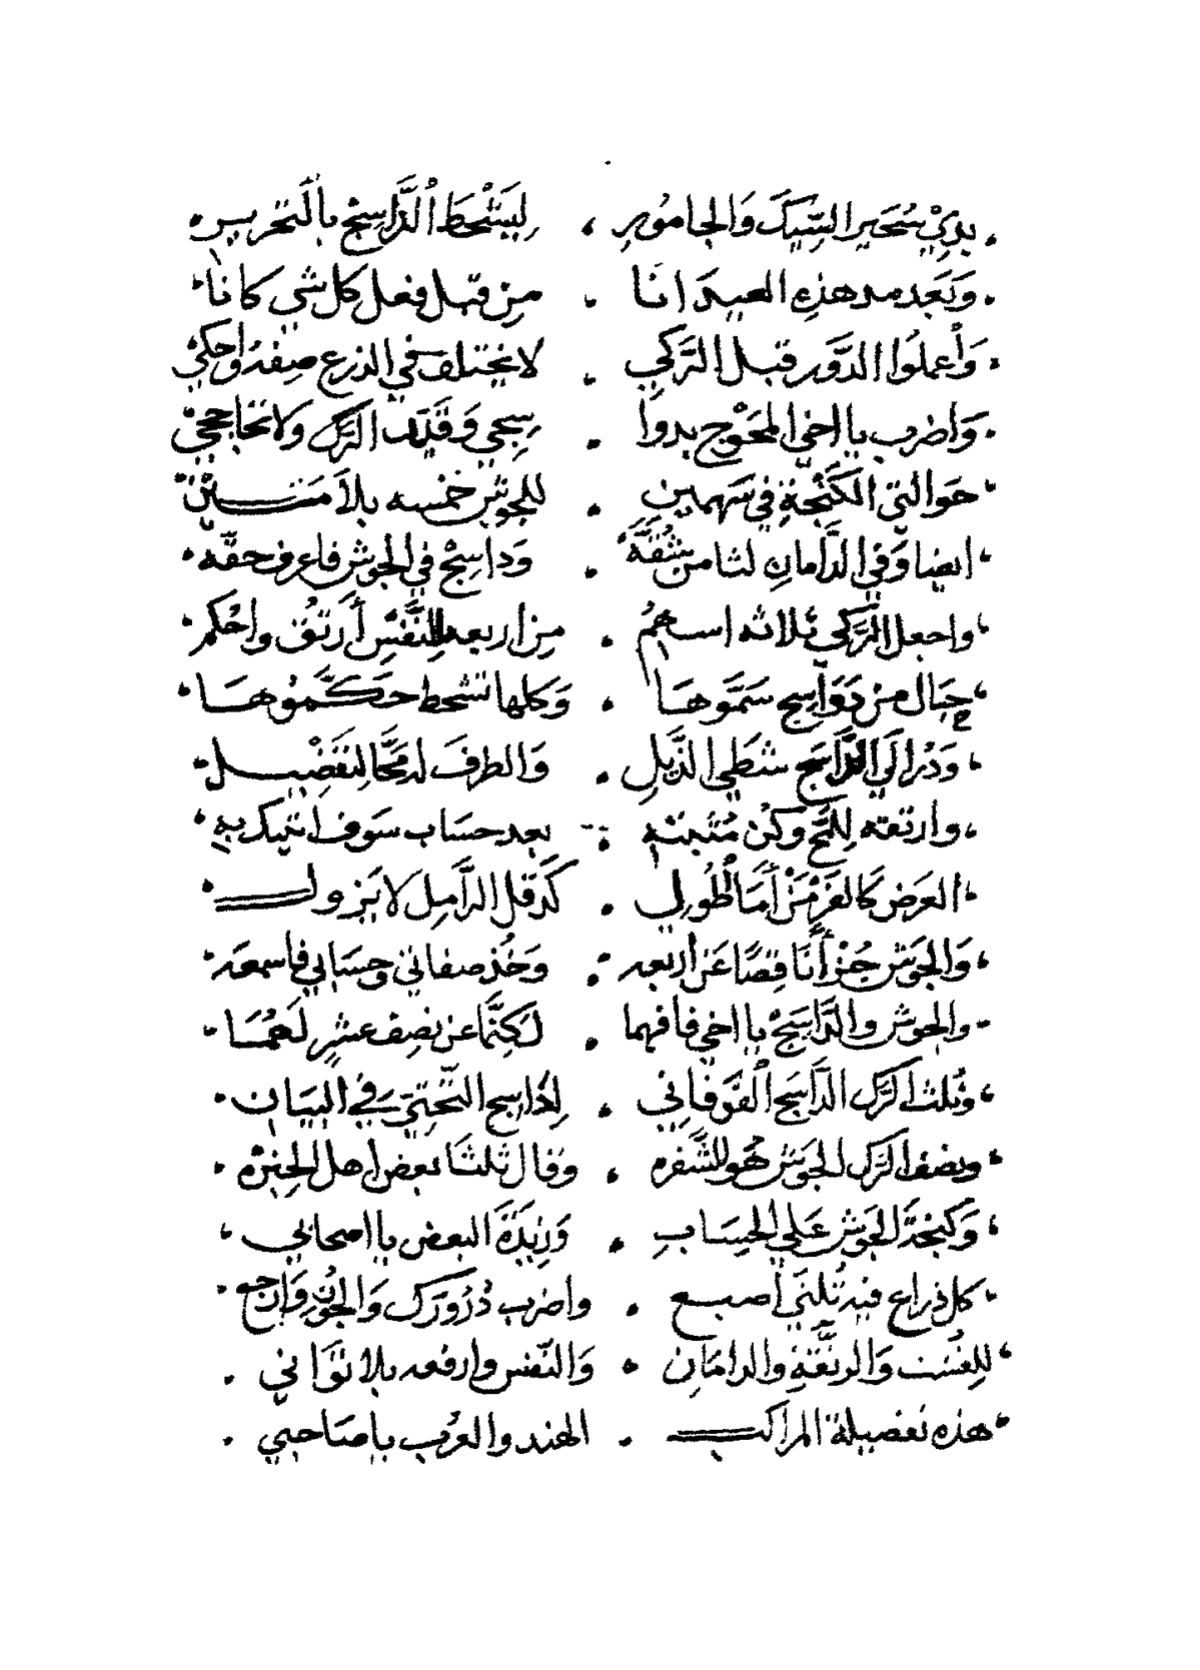 بدي سحير السيك والجامور ، ليشحط الداسج بالتحرير
وبعد مد هذه العبد انا . من قبل فعل كل شي كانا
واعملوا الدور قبل التركي . لا يختلف في الذرع صفه واحكي
واضرب يا اخي المحوج بدوا . سيجي وقيد الترك ولا تحاججي
حوالتي الكنجة في سهمين . للجوش خمسه بلا متين
ايضا وفي الدامان لثامن شقه . وداسج في الجوش فاعرف حقه
واجعل التركي ثلاثه اسهم . من اربعه للنفس أرتق واحكم
حبال من دواسج سموها . وكلها تشحط حكموها
ودرا الي الداسج شطي الذيل . والطرف له محا لتفضيل
وارتقه للمح وكن متبته . بعد حساب سوف انيك به
العرض كالفرمز أما طولي . كدقل الرامل لا يزول
والجوش جزأنا قصا عن اربعه . وخذ صفاتي وحسابي فاسمعه
والجوش والداسج يا اخي فافهما . لكنما عن نصف عشر لهما
وثلث الترك الداسج الفوقاني . لداسج التحتي في البيان
ونصف الترك الجوش هو للشفره . وقال ثلثا بعض اهل الخبره
وكبخة الجوش علي الحساب . وزيدة البعض يا اصحابي
كل ذراع فيه ثلثي أصبع . واضرب دزورك والجون وارجع
للغشت والرنقة والدامان . والنفس وارفعه بلا تواني
هذه تفصيلة المراكب . الهند والعرب يا صاحبي